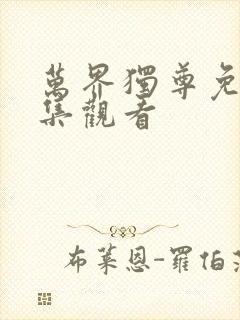 萬界獨尊免
集觀看
布萊恩-羅伯